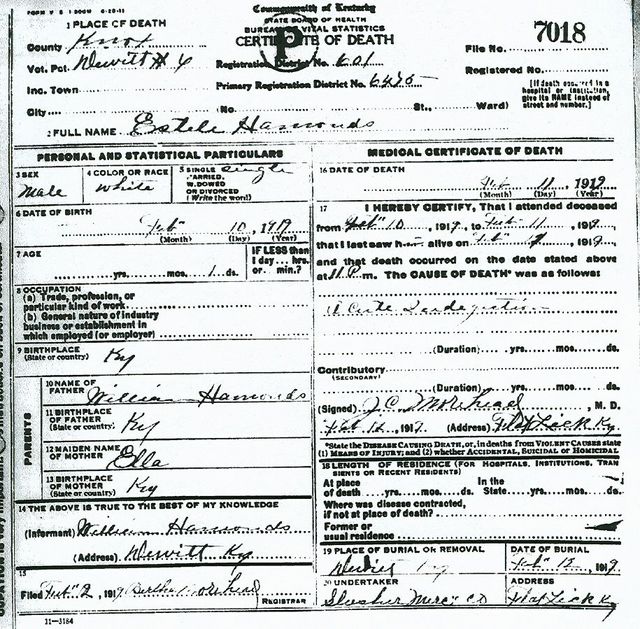 FORM V S 1 500M 6-20-11
Commonwealth of Kentucky
STATE BOARD OF HEALTH
BUREAU OF VITAL STATISTICS
CERTIFICATE OF DEATH
7018
1 PLACE OF DEATH
County Knox
Vot. Pct. Dewitt # 6
Registration District No. 601
File No.
Inc. Town
Primary Registration District No. 6475
Registered No.
City (No. St., Ward)
[If death occurred in a hospital or institution, give its NAME instead of street and number.]
2 FULL NAME Estele Hamonds
PERSONAL AND STATISTICAL PARTICULARS
3 SEX Male
4 COLOR OR RACE White
5 SINGLE, MARRIED, WIDOWED OR DIVORCED (Write the word) Single
6 DATE OF BIRTH Feb 10, 1919
(Month) (Day) (Year)
7 AGE
yrs. mos. 1 ds.
IF LESS than 1 day... hrs. or min.?
8 OCCUPATION
(a) Trade, profession, or particular kind of work
(b) General nature of industry business or establishment in which employed (or employer)
9 BIRTHPLACE (State or country) Ky
PARENTS
10 NAME OF FATHER William Hamonds
11 BIRTHPLACE OF FATHER (State or country) Ky
12 MAIDEN NAME OF MOTHER Ella
13 BIRTHPLACE OF MOTHER (State or country) Ky
14 THE ABOVE IS TRUE TO THE BEST OF MY KNOWLEDGE
(Informant) William Hamonds
(Address) Dewitt Ky
15
Filed Feb 2, 191 Bertha Morehead
REGISTRAR
11-3184
MEDICAL CERTIFICATE OF DEATH
16 DATE OF DEATH
Feb 11, 1919
(Month) (Day) (Year)
17 I HEREBY CERTIFY, That I attended deceased
from Feb 10, 1919, to Feb 11, 1919,
that I last saw him alive on Feb, 1919,
and that death occurred on the date stated above
at 11 P. m. The CAUSE OF DEATH* was as follows:
Acute
(Duration) yrs. mos. ds.
Contributory (SECONDARY)
(Duration) yrs. mos. ds.
(Signed) J C Morehead, M. D.
Feb 12, 1919 (Address) Flat Lick Ky
*State the DISEASE CAUSING DEATH, or, in deaths from VIOLENT CAUSES state
(1) MEANS OF INJURY; and (2) whether ACCIDENTAL, SUICIDAL or HOMICIDAL
18 LENGTH OF RESIDENCE (FOR HOSPITALS, INSTITUTIONS, TRANSIENTS OR RECENT RESIDENTS)
At place of death yrs. mos. ds. In the State yrs. mos. ds.
Where was disease contracted, if not at place of death?
Former or usual residence
19 PLACE OF BURIAL OR REMOVAL Dewitt Ky
DATE OF BURIAL Feb 12, 1919
20 UNDERTAKER Slusher Merc. Co
ADDRESS Flat Lick Ky